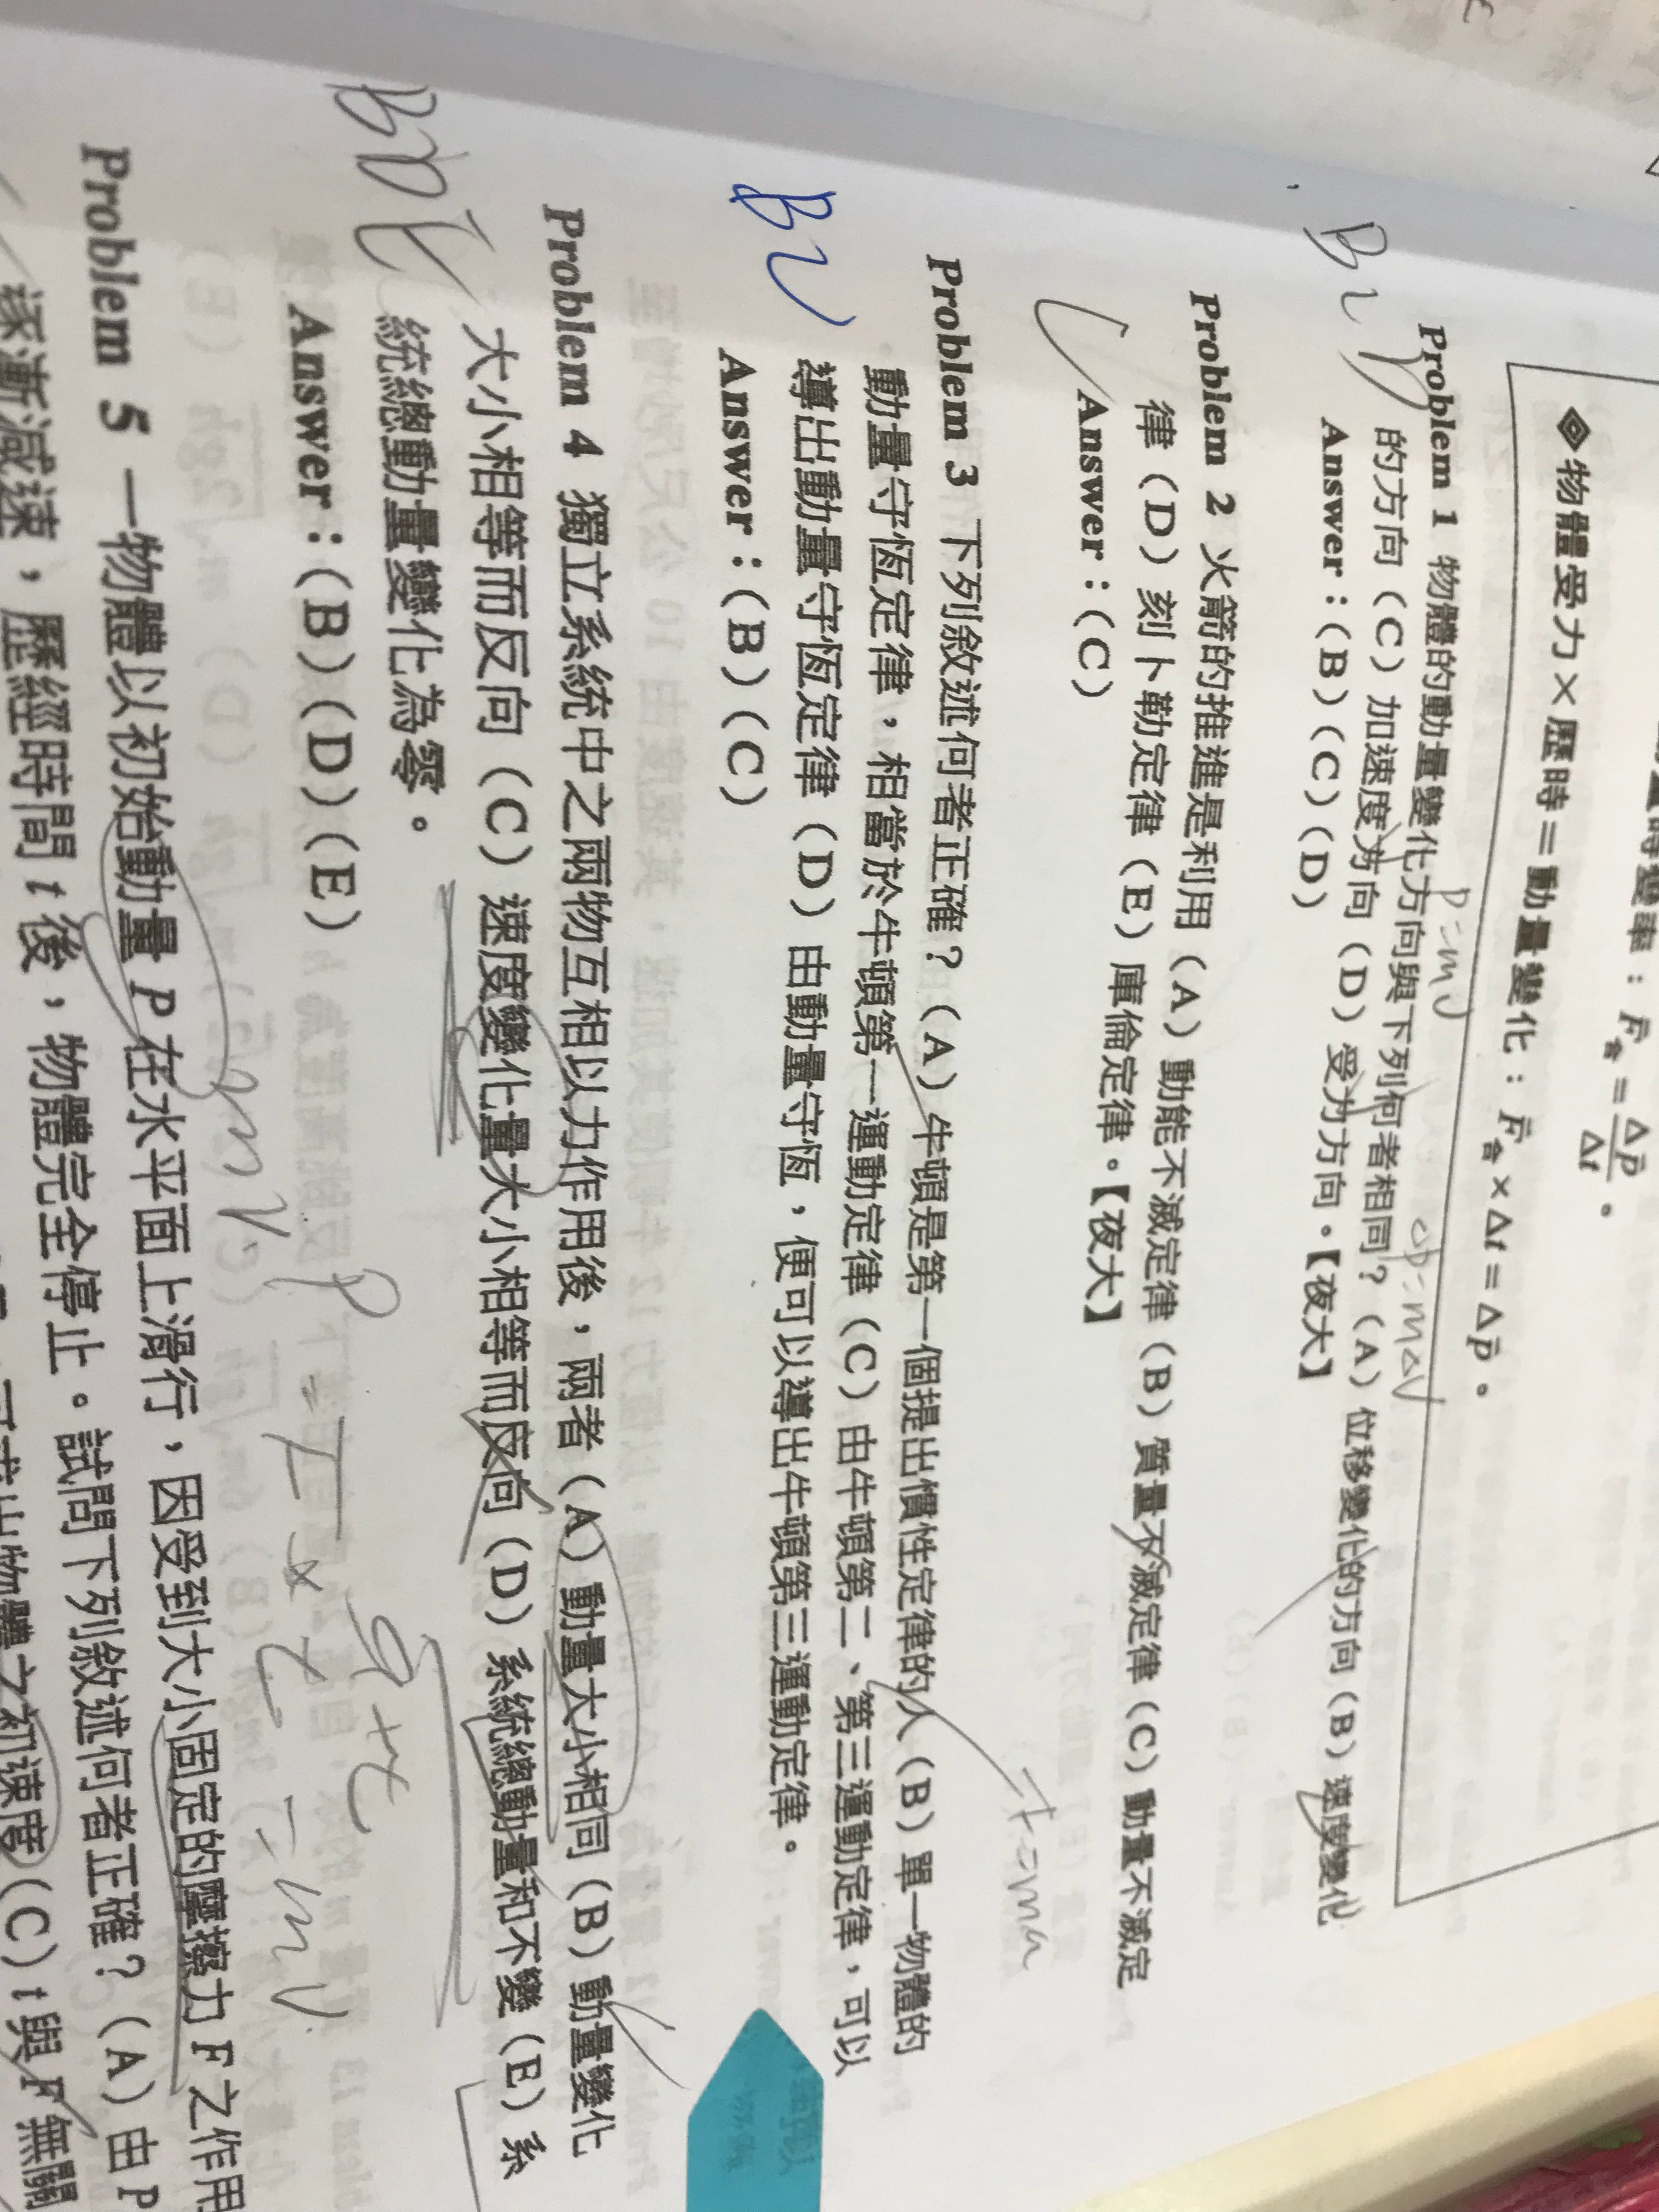 F合 = Δp/Δt 。
◈物體受力×歷時＝動量變化：F合×Δt＝Δp。
Problem 1 物體的動量變化方向與下列何者相同？（A）位移變化的方向（B）速度變化
的方向（C）加速度方向（D）受力方向。【夜大】
Answer：(B)(C)(D)
P=mv
ΔP=mΔV
Problem 2 火箭的推進是利用（A）動能不滅定律（B）質量不滅定律（C）動量不滅定
律（D）刻卜勒定律（E）庫倫定律。【夜大】
Answer：(C)
F=ma
Problem 3 下列敘述何者正確？（A）牛頓是第一個提出慣性定律的人（B）單一物體的
動量守恆定律，相當於牛頓第一運動定律（C）由牛頓第二、第三運動定律，可以
導出動量守恆定律（D）由動量守恆，便可以導出牛頓第三運動定律。
Answer：(B)(C)
Problem 4 獨立系統中之兩物互相以力作用後，兩者（A）動量大小相同（B）動量變化
大小相等而反向（C）速度變化量大小相等而反向（D）系統總動量和不變（E）系
統總動量變化為零。
Answer：(B)(D)(E)
Problem 5 一物體以初始動量 P 在水平面上滑行，因受到大小固定的摩擦力 F 之作用
逐漸減速，歷經時間 t 後，物體完全停止。試問下列敘述何者正確？（A）由 P
物體之初速度（C）t 與 F 無關